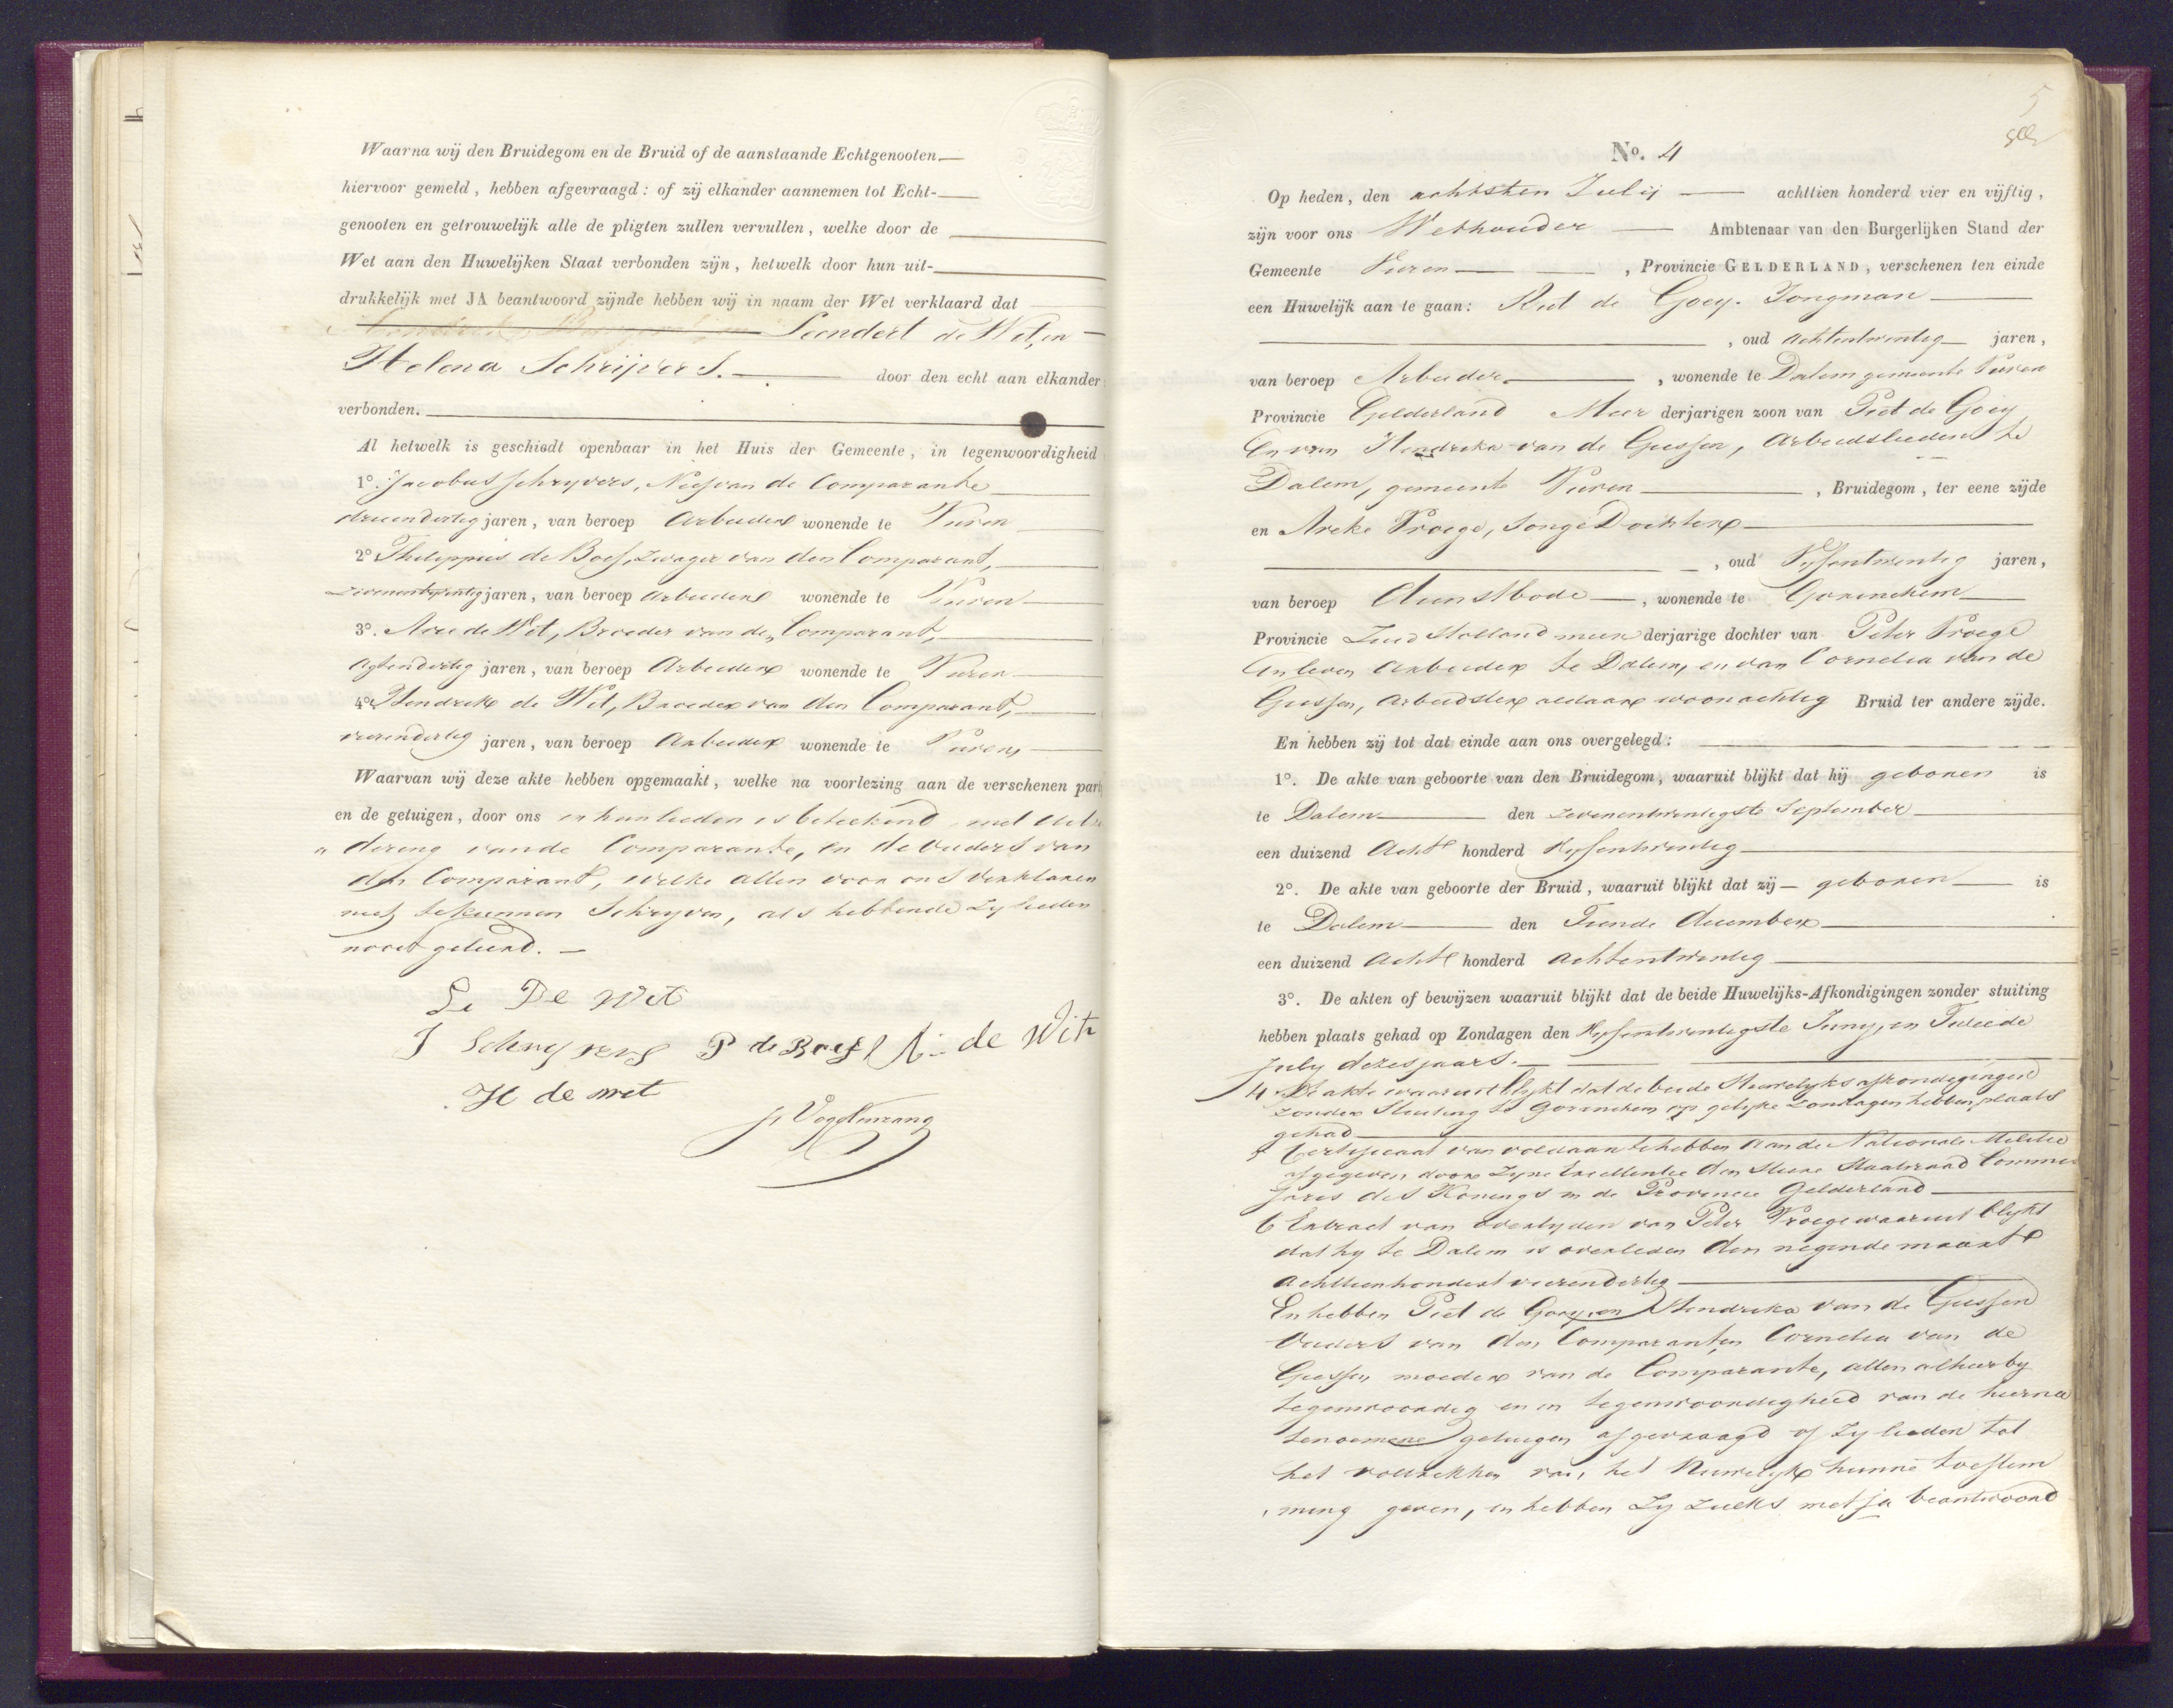 Waarna wij den Bruidegom en de Bruid of de aanstaande Echtgenooten
hiervoor gemeld, hebben afgevraagd: of zij elkander aannemen tot Echt-
genooten en getrouwelijk alle de pligten zullen vervullen, welke door de
Wet aan den Huwelijken Staat verbonden zijn, hetwelk door hun uit-
drukkelijk met JA beantwoord zijnde hebben wij in naam der Wet verklaard dat
Leendert de Wit, en
Helena Schrijvers. door den echt aan elkander
verbonden.
Al hetwelk is geschiedt openbaar in het Huis der Gemeente, in tegenwoordigheid
1º. Jacobus Schryvers, Neef van de Comparante
drieendertig jaren, van beroep Arbeider wonende te Vuren
2º Philippus de Boef, Zwager van den Comparant,
jaren, van beroep Arbeider wonende te Vuren
3º. Arie de Wit, Broeder van den Comparant,
Agtendertig jaren, van beroep Arbeider wonende te Vuren
4º Hendrik de Wit, Broeder van den Comparant,
vierendertig jaren, van beroep Arbeider wonende te Vuren,
Waarvan wij deze akte hebben opgemaakt, welke na voorlezing aan de verschenen part
en de getuigen, door ons en hun lieden is beteekend met uitz
dering van de Comparante, en de Ouders van
den Comparant, welke allen voor ons verklaren
niet te kunnen Schryven, als hebbende Zy lieden
nooit geleerd.
Le De Wit
J Schryvers P de Boef A de Wit
H de wit
J. Vogelenzang
5
Nº. 4
Op heden, den achtsten Julij achttien honderd vier en vijftig,
zijn voor ons Wethouder Ambtenaar van den Burgerlijken Stand der
Gemeente Vuren, Provincie GELDERLAND, verschenen ten einde
een Huwelijk aan te gaan: Riet de Goey. Jongman
, oud Achtentwintig jaren,
van beroep Arbeider, wonende te Dalem gemeente Vuren
Provincie Gelderland Meer derjarigen zoon van Piet de Goey
En van Hendrika van de Giessen, Arbeidslieden te
Dalem, gemeente Vuren, Bruidegom, ter eene zijde
en Areke Vroege, Jonge Dochter
, oud Vyfentwintig jaren,
van beroep Dienstbode, wonende te Gorinchem
Provincie Zuid Holland meer derjarige dochter van Peter Vroege
In leven Arbeider te Dalem, en van Cornelia van de
Giessen, Arbeidster aldaar woonachtig Bruid ter andere zijde.
En hebben zij tot dat einde aan ons overgelegd:
1º. De akte van geboorte van den Bruidegom, waaruit blijkt dat hij geboren is
te Dalem den zevenentwintigste September
een duizend Acht honderd Vyfentwintig
2º. De akte van geboorte der Bruid, waaruit blijkt dat zij geboren is
te Dalem den Tiende December
een duizend Acht honderd Achtentwintig
3º. De akten of bewijzen waaruit blijkt dat de beide Huwelijks-Afkondigingen zonder stuiting
hebben plaats gehad op Zondagen den Vyfentwintigste Juny, en Tweede
July dezes jaars.
4 De akte waaruit blykt dat de beide Huwelyks afkondigingen
zonder Stuiting te Gorinchem op gelyke Zondagen hebben plaats
gehad
5 Certificaat van voldaan te hebben aan de Nationale Militie
afgegeven door Zyne Excellentie den Heere Staatsraad Commis
saris des Konings in de Provincie Gelderland
6 Extract van overlyden van Peter Vroege waaruit blykt
dat hy te Dalem is overleden den negende maart
Achttienhondert vierendertig
En hebben Piet de Goey, en Hendrika van de Giessen
Ouders van den Comparant, en Cornelia van de
Giessen moeder van de Comparante, allen alhier by
tegenwoordig en in tegenwoordigheid van de hierna
tenoemene getuigen afgevraagd of Zy lieden tot
het voltrekken van het Huwelyk hunne toestem
ming geven, en hebben Zy zulks met ja beantwoord